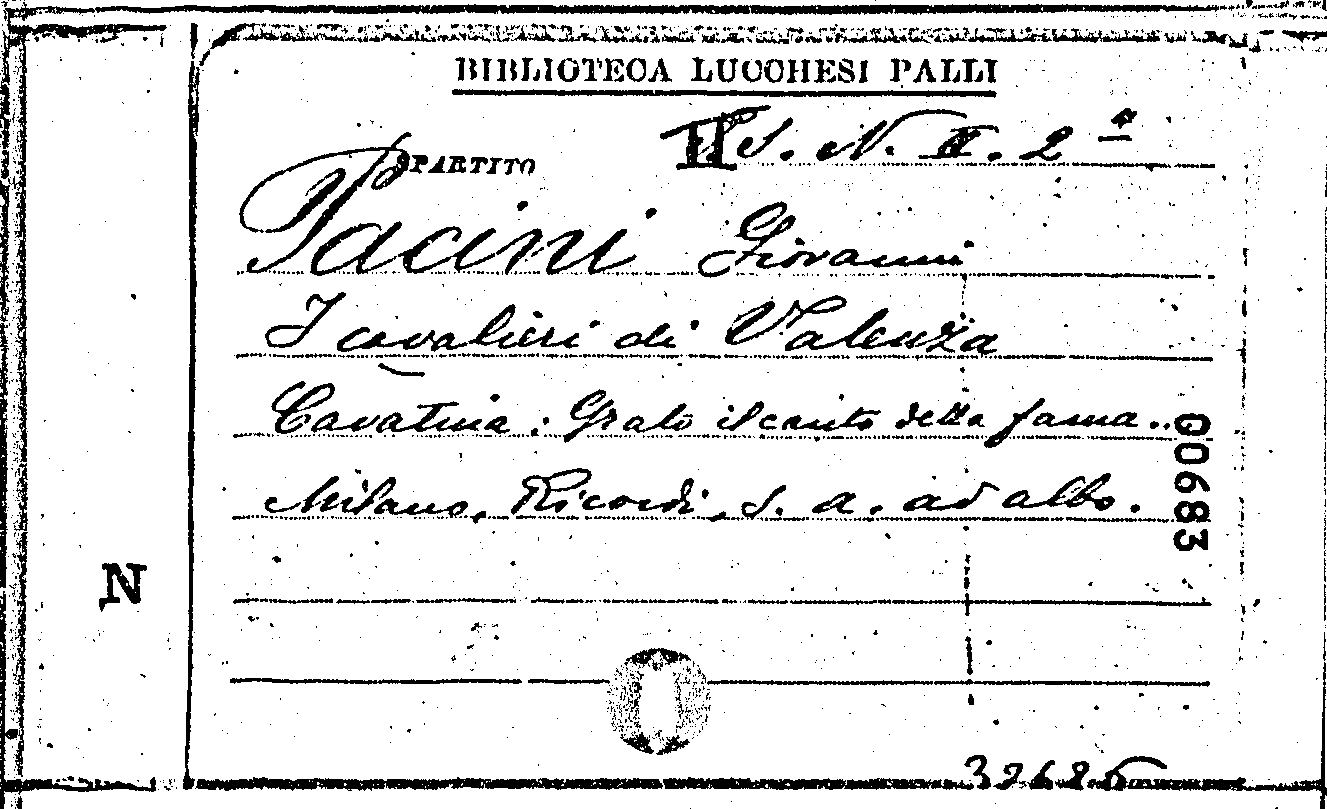 BIBLIOTECA LUCCHESI PALLI
S. N. II. 2ª
SPARTITO
Pacini Giovanni
I cavalieri di Valenza
Cavatina: Grato il canto della fama..
Milano, Ricordi, s. a. ad albo.
00683
N